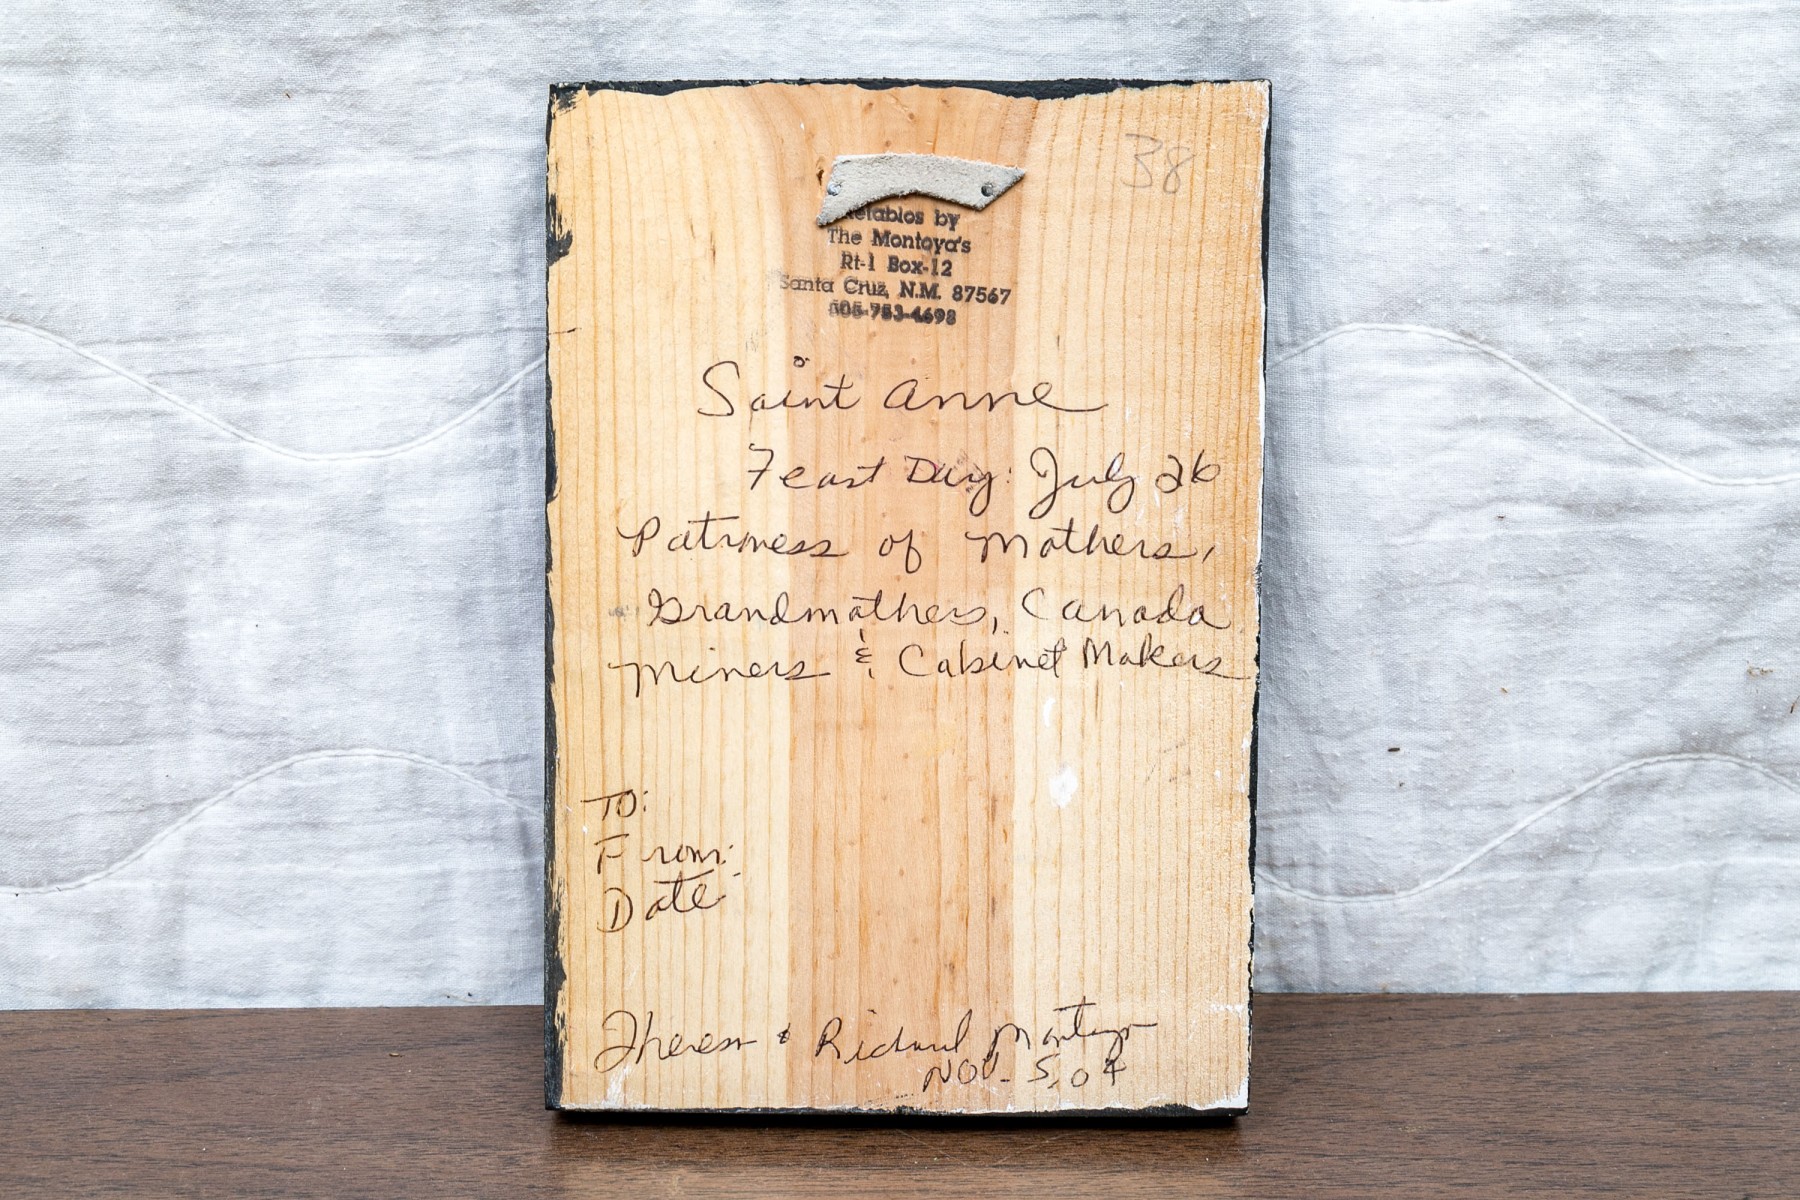 38
Retablos by
The Montoya's
Rt-1 Box-12
Santa Cruz, N.M. 87567
505-753-4698
Saint Anne
Feast Day: July 26
Patroness of Mothers,
Grandmothers, Canada
Miners & Cabinet Makers
TO:
From:
Date:
Theresa & Richard Montoya
NOV- 5, 04